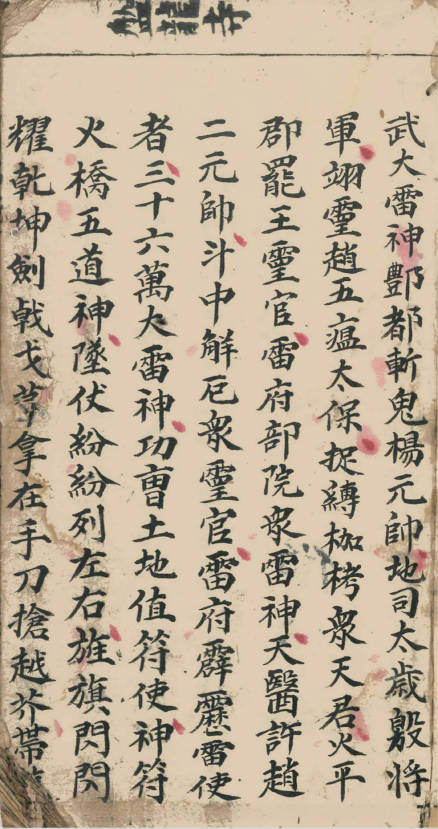 武大雷神酆都斬鬼楊元帥地司太歲殷將
軍翊靈趙五瘟太保捉縛枷栲衆天君火平
郡罷王靈官雷府部院衆雷神天醫許趙
二元帥斗中觧厄衆靈官雷府霹靂雷使
者三十六萬大雷神功曹土地值符使神符
火橋五道神墜伏紛紛列左右旌旗閃閃
耀乾坤劍戟戈矛拿在手刀搶越斧帶